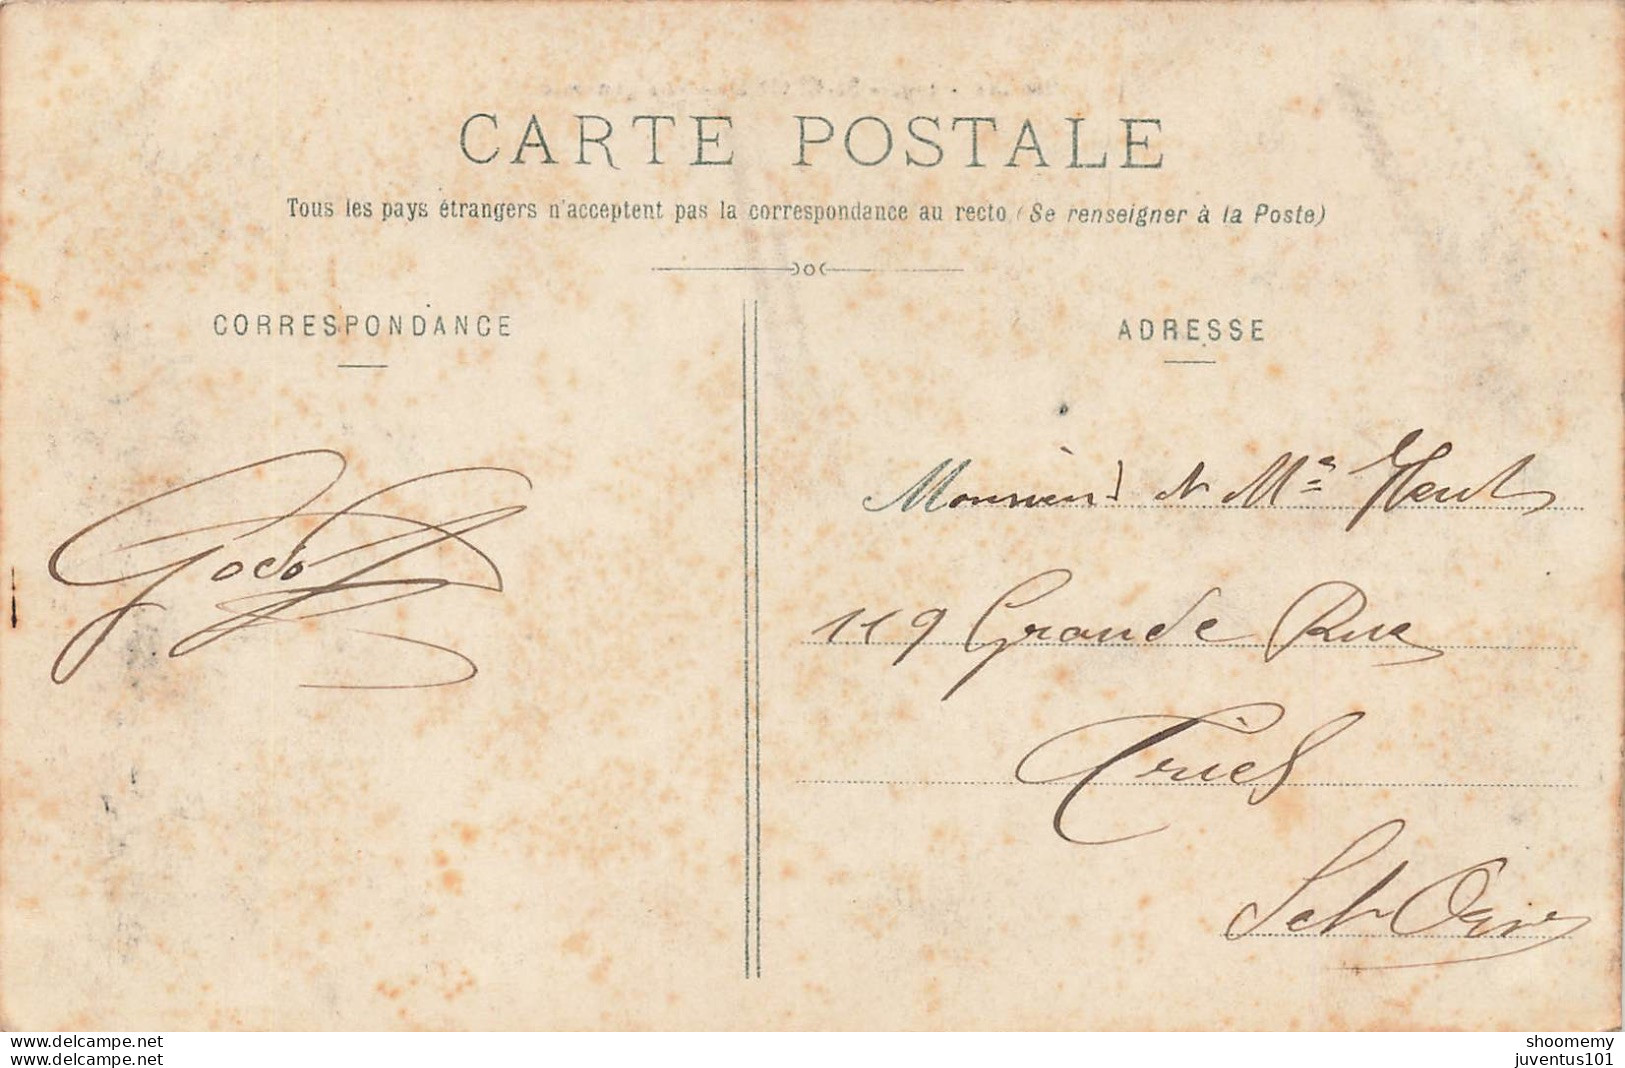 CARTE POSTALE
Tous les pays étrangers n'acceptent pas la correspondance au recto (Se renseigner à la Poste)
CORRESPONDANCE
ADRESSE
Monsieur & Mme
119 Grande Rue
Triel
Set Oise
www.delcampe.net
shoomemy
delcampe.net
juventus101